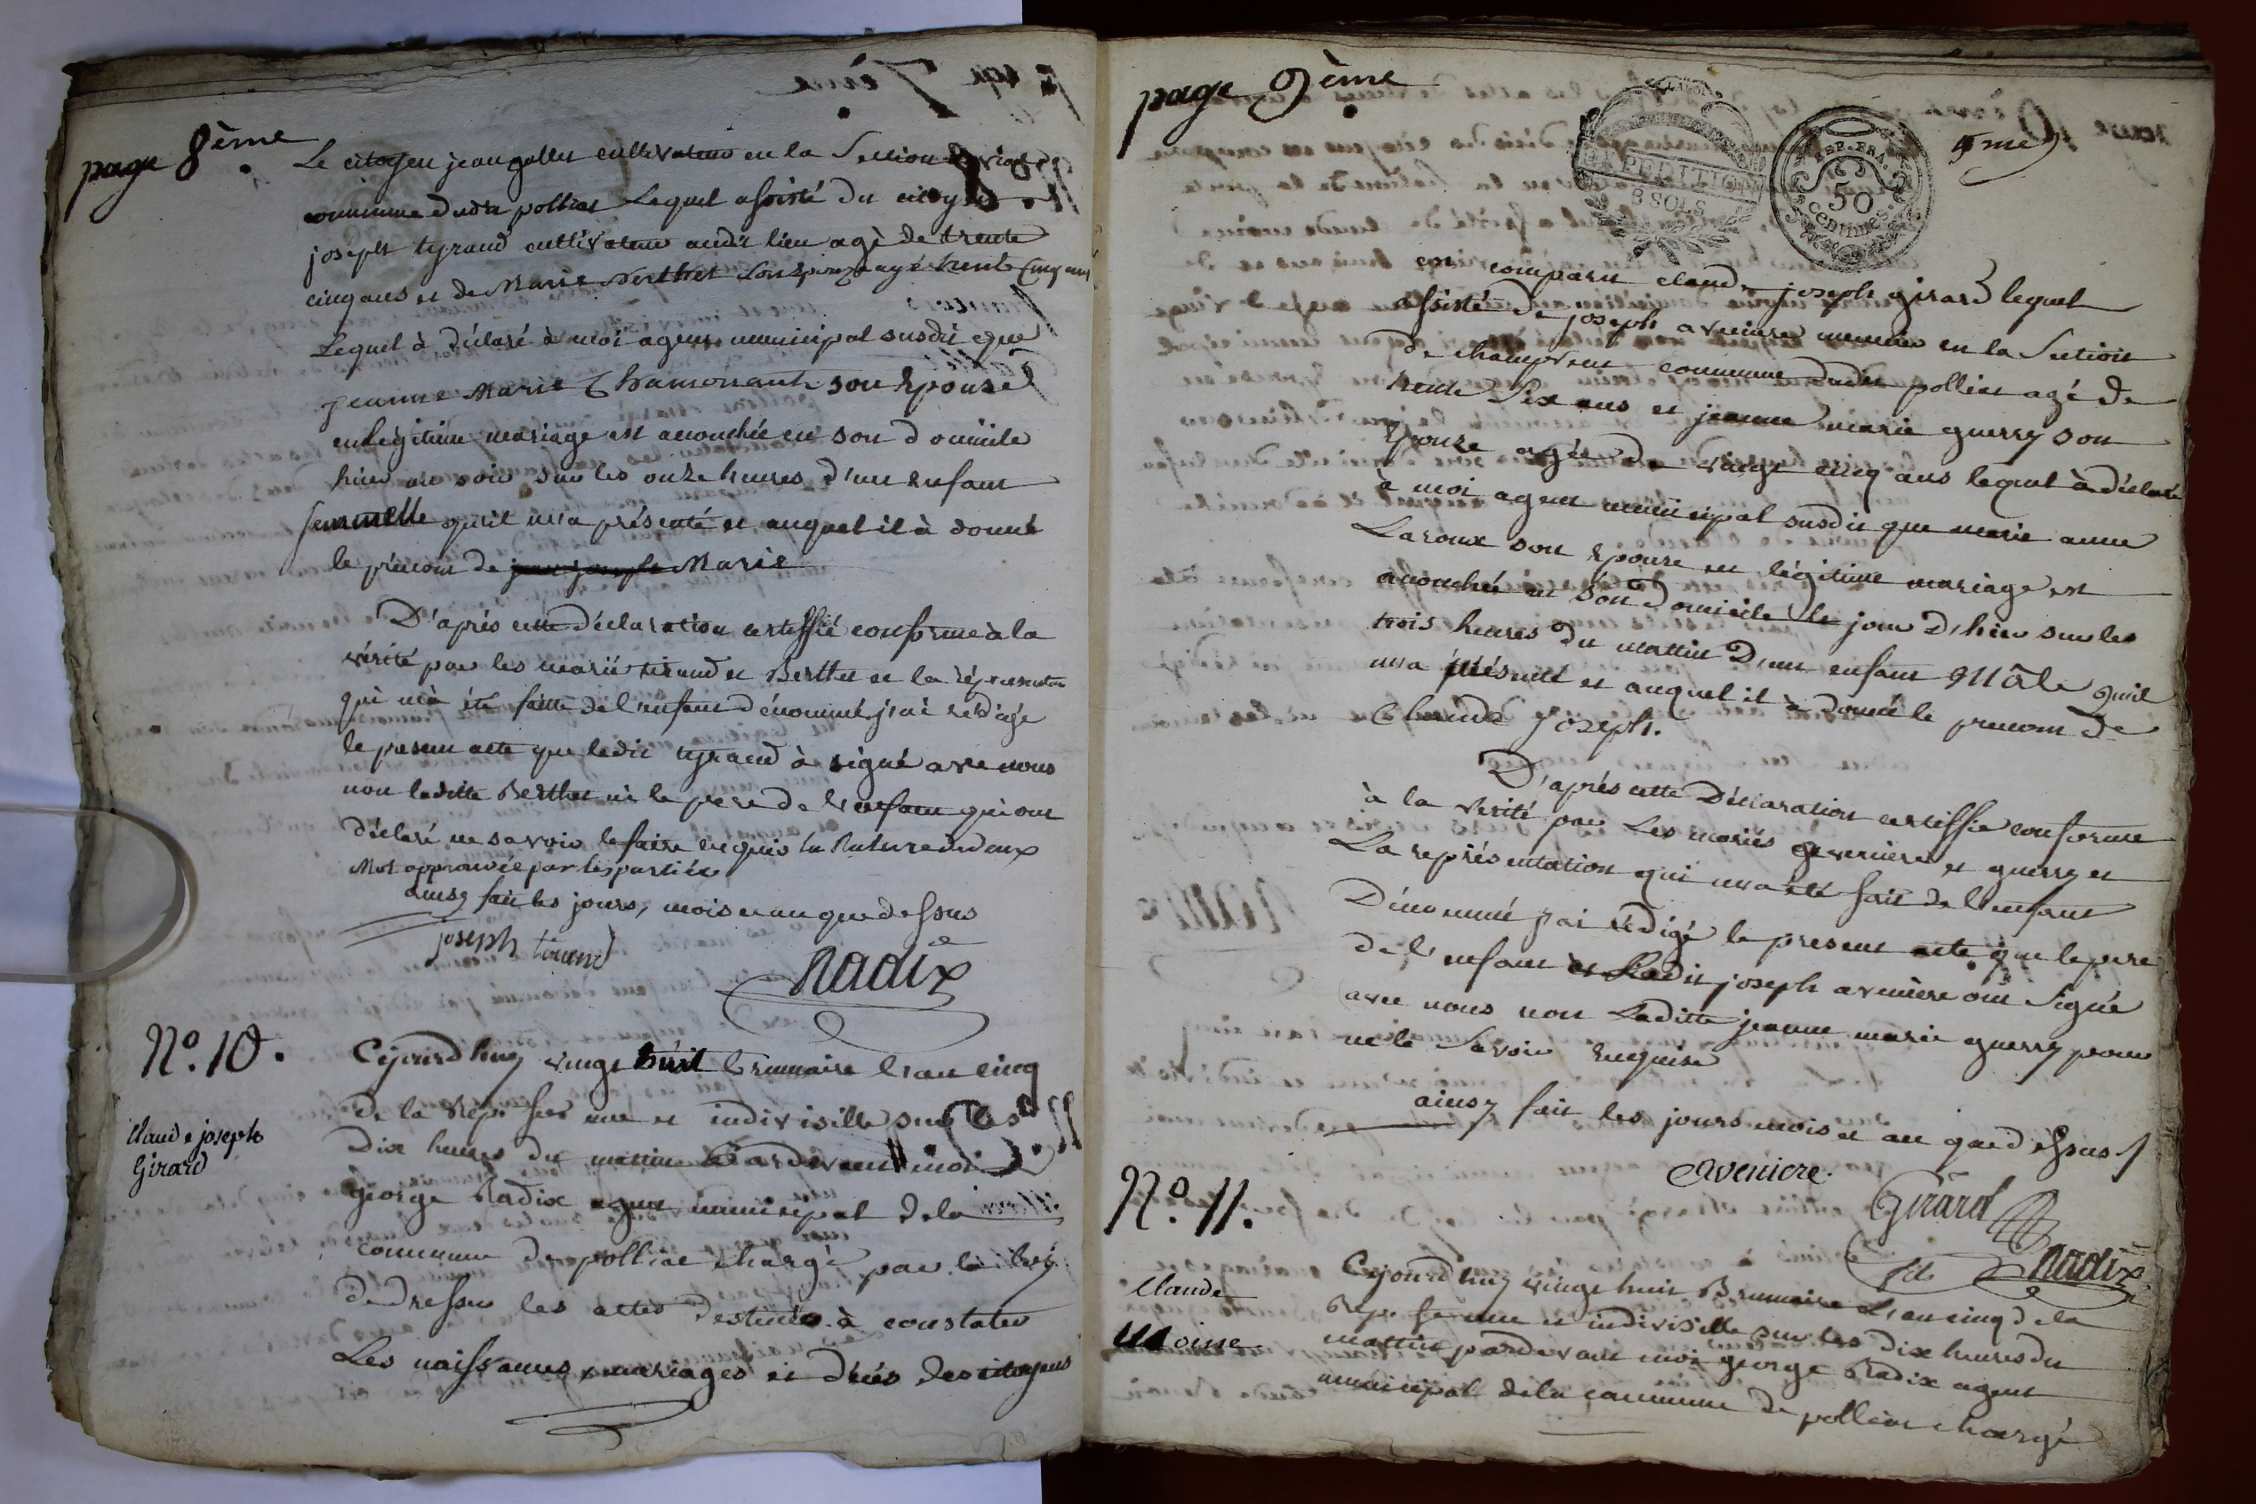 page 8ème
Le citoyen jean gallet cultivateur en la Section
commune dudit polliat Lequel assisté du citoyen
joseph tyrand cultivateur audit lieu agé de trente
cinq ans et de Marie Berthet Son Epouze agé trente Cinq ans
Lequel à déclaré à moi agent municipal susdit que
jeanne Marie Chamonant son Epouse
en légitime mariage est accouchée en son domicile
hier au soir sur les onze heures d'un enfant
femmelle qu'il m'a présenté et auquel il à donné
le prénom de jean joseph Marie
D'après cette déclaration certiffié conforme à la
vérité par les marié tirand et Berthet et la répresentation
qui m'a été faitte de l'enfant dénommé j'ai rédigé
le present acte que ledit tyrand à signé avec nous
non laditte Berthet ni le pere de l'enfant qui ont
déclaré ne savoir le faire enquis la Rature de deux
Mot approuvée par les parties
ainsy fait les jours, mois et an que dessus
joseph tirand
Radix
N.º 10.
Claude joseph
Girard
Cejourd'huy vingt huit brumaire l'an cinq
de la rép. fse une et indivisible sur les
Dix heures du mattin Pardevant moi
george Radix agent municipal de la
commune de polliat chargé par la loy
de dresser les actes destinés à constater
Les naissances, mariages et décés des citoyens
page 9ème
9me
EXPEDITION
8 SOLS
REP. FRA.
50
centimes.
est comparu claude joseph girard lequel
assisté de joseph aveniere meunier en la Section
de champvent commune dudit polliat agé de
trente Six ans et jeanne marie guerry son
Epouze agée de vingt cinq ans lequel à déclaré
à moi agent municipal susdit que marie anne
Laroux son Epouse en légitime mariage est
accouchée en son domicile le jour d'hier sur les
trois heures du mattin D'un enfant Mâle qu'il
m'a présenté et auquel il à donné le prenom de
Claude Joseph.
D'après cette Déclaration certiffié conforme
à la verité par Les mariés aveniere et guerry et
La représentation qui m'a été fait de l'enfant
Dénommé j'ai rédigé le present acte que le pere
de l'enfant et Ledit joseph aveniere ont Signé
avec nous non Laditte jeanne marie guerry pour
ne le Savoir enquise
ainsy fait les jours mois et an que dessus
aveniere.
Girard
Radix
N.º 11.
Claude
Moine.
Cejourd'huy vingt huit Brumaire L'an cinq de la
Rep. fse une et indivisible sur les dix heures du
mattin pardevant moi george Radix agent
municipal de la commune de polliat chargé